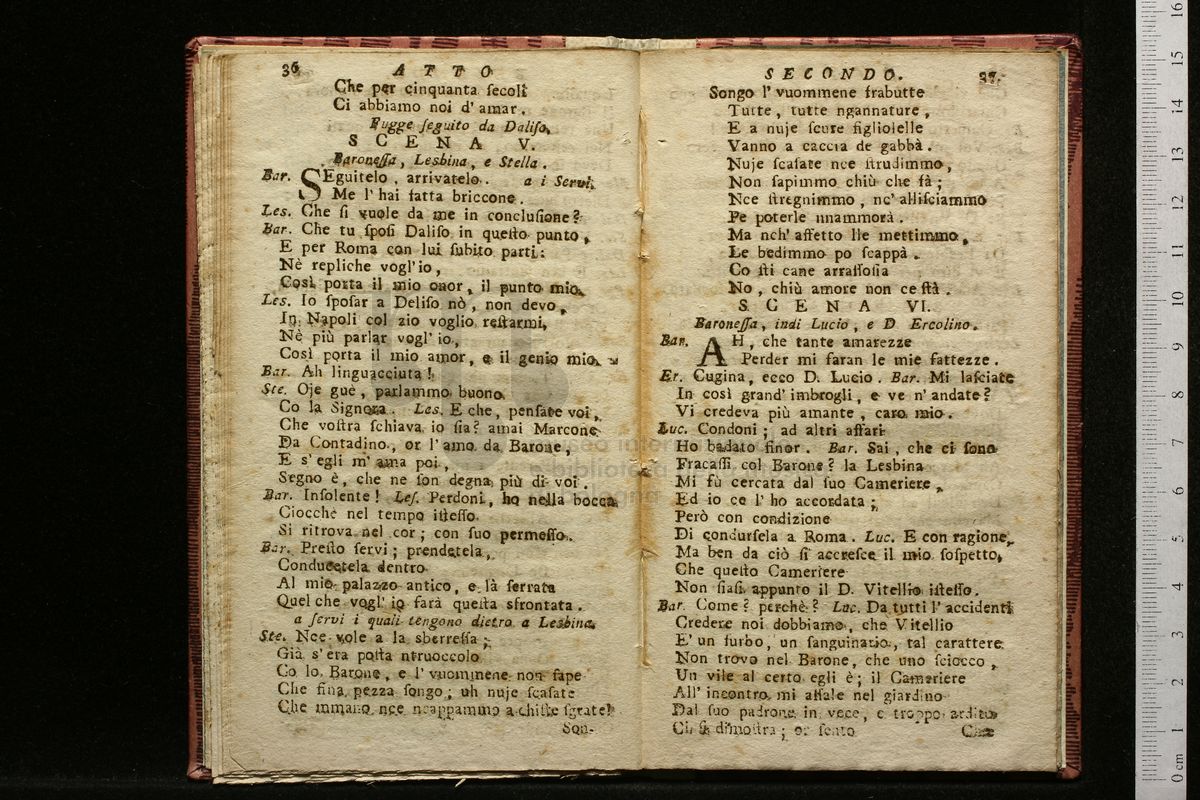 36
ATTO
Che per cinquanta ſecoli
Ci abbiamo noi d' amar.
Fugge ſeguito da Daliſo.
SCENA V.
Baroneſſa, Lesbina, e Stella.
Bar. SEguitelo, arrivatelo. a i Servi.
Me l' hai fatta briccone.
Les. Che ſi vuole da me in concluſione?
Bar. Che tu ſpoſi Daliſo in queſto punto,
E per Roma con lui ſubito parti:
Nè repliche vogl' io,
Così porta il mio onor, il punto mio.
Les. Io ſpoſar a Deliſo nò, non devo,
In Napoli col zio voglio reſtarmi,
Nè più parlar vogl' io,
Così porta il mio amor, e il genio mio.
Bar. Ah linguacciuta!
Ste. Oje guè, parlammo buono
Co la Signora. Les. E che, penſate voi,
Che voſtra ſchiava io ſia? amai Marcone
Da Contadino, or l' amo da Barone,
E s' egli m' ama poi,
Segno è, che ne ſon degna più di voi.
Bar. Inſolente! Leſ. Perdoni, ho nella bocca
Ciocchè nel tempo iſteſſo
Si ritrova nel cor; con ſuo permeſſo.
Bar. Preſto ſervi; prendetela,
Conducetela dentro
Al mio palazzo antico, e là ſerrata
Quel che vogl' io farà queſta sfrontata.
a ſervi i quali tengono dietro a Lesbina.
Ste. Nce vole a la sberreſſa;
Già s' era poſta ntruoccolo
Co lo Barone, e l' vuommene non ſape
Che fina pezza ſongo; uh nuje ſcaſate
Che mmano nce ncappammo a chiſte ſgrate!
Son-
SECONDO.
37
Songo l' vuommene frabutte
Tutte, tutte ngannature,
E a nuje ſcure figliolelle
Vanno a caccia de gabbà.
Nuje ſcaſate nce ſtrudimmo,
Non ſapimmo chiù che fà;
Nce ſtregnimmo, nc' alliſciammo
Pe poterle nnammorà.
Ma nch' affetto lle mettimmo,
Le bedimmo po ſcappà.
Co ſti cane arraſſoſia
No, chiù amore non ce ſtà.
SCENA VI.
Baroneſſa, indi Lucio, e D Ercolino.
Bar. AH, che tante amarezze
Perder mi faran le mie fattezze.
Er. Cugina, ecco D. Lucio. Bar. Mi laſciate
In così grand' imbrogli, e ve n' andate?
Vi credeva più amante, caro mio.
Luc. Condoni; ad altri affari
Ho badato finor. Bar. Sai, che ci ſono
Fracaſſi col Barone? la Lesbina
Mi fù cercata dal ſuo Cameriere,
Ed io ce l' ho accordata;
Però con condizione
Di condurſela a Roma. Luc. E con ragione,
Ma ben da ciò ſi accreſce il mio ſoſpetto,
Che queſto Cameriere
Non ſiaſi appunto il D. Vitellio iſteſſo.
Bar. Come? perchè? Luc. Da tutti l' accidenti
Credere noi dobbiamo, che Vitellio
E' un furbo, un ſanguinario, tal carattere
Non trovo nel Barone, che uno ſciocco,
Un vile al certo egli è; il Cameriere
All' incontro mi aſſale nel giardino
Dal ſuo padrone in vece, e troppo ardito
Ci ſi dimoſtra; or ſento